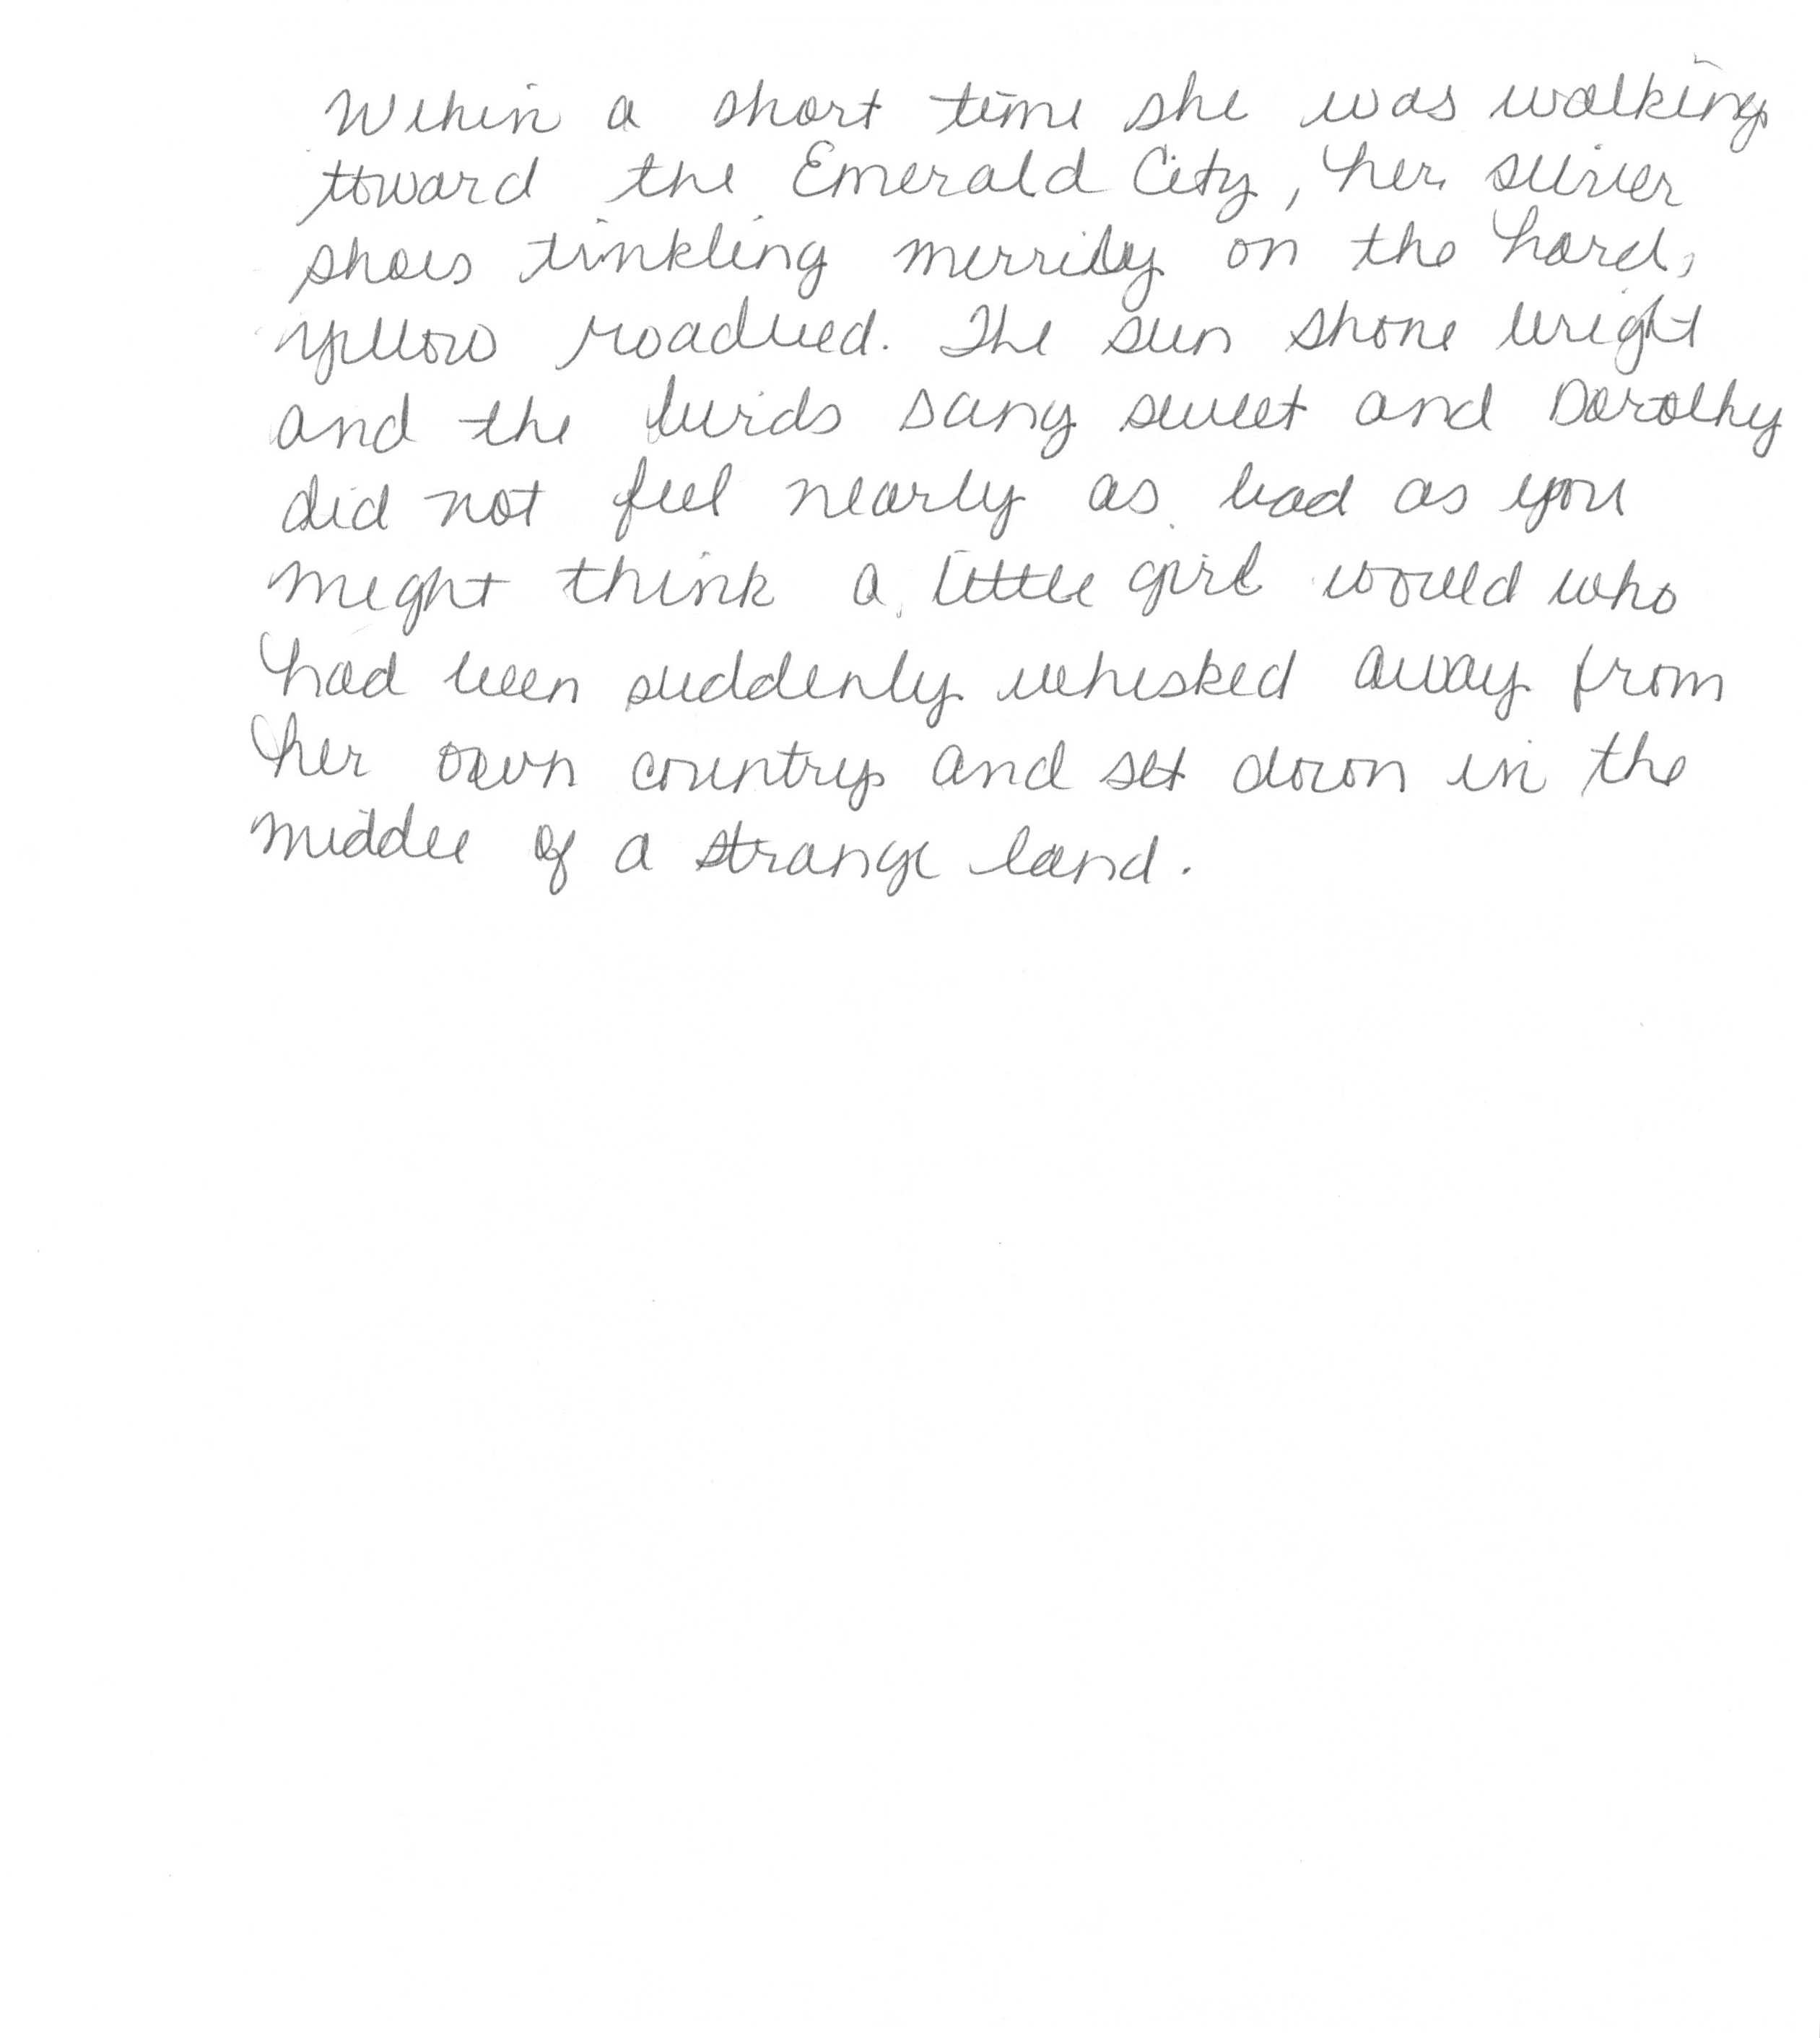 Within a short time she was walking
toward the Emerald City, her silver
shoes tinkling merrily on the hard,
yellow roadbed. The sun shone bright
and the birds sang sweet and Dorothy
did not feel nearly as bad as you
might think a little girl would who
had been suddenly whisked away from
her own country and set down in the
middle of a strange land.